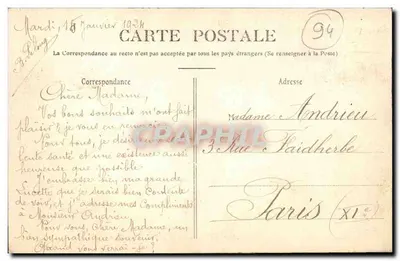 Mardi, 15 Janvier 1924
94
CARTE POSTALE
La Correspondance au recto n'est pas acceptée par tous les pays étrangers (Se renseigner à la Poste)
Correspondance
Adresse
Chère Madame,
Vos bons souhaits m'ont fait
plaisir & je vous en
Pour vous, je désire
santé et une existence aussi
heureuse que possible
ma grande
que je serais bien contente
de voir, et j'adresse mes compliments
à Monsieur Andrieu
Pour vous, Chère Madame, un
bon sympathique souvenir.
Quand vous verrai-je!
Madame Andrieu
3 Rue Faidherbe
Paris (XIe)
CPAPHIL